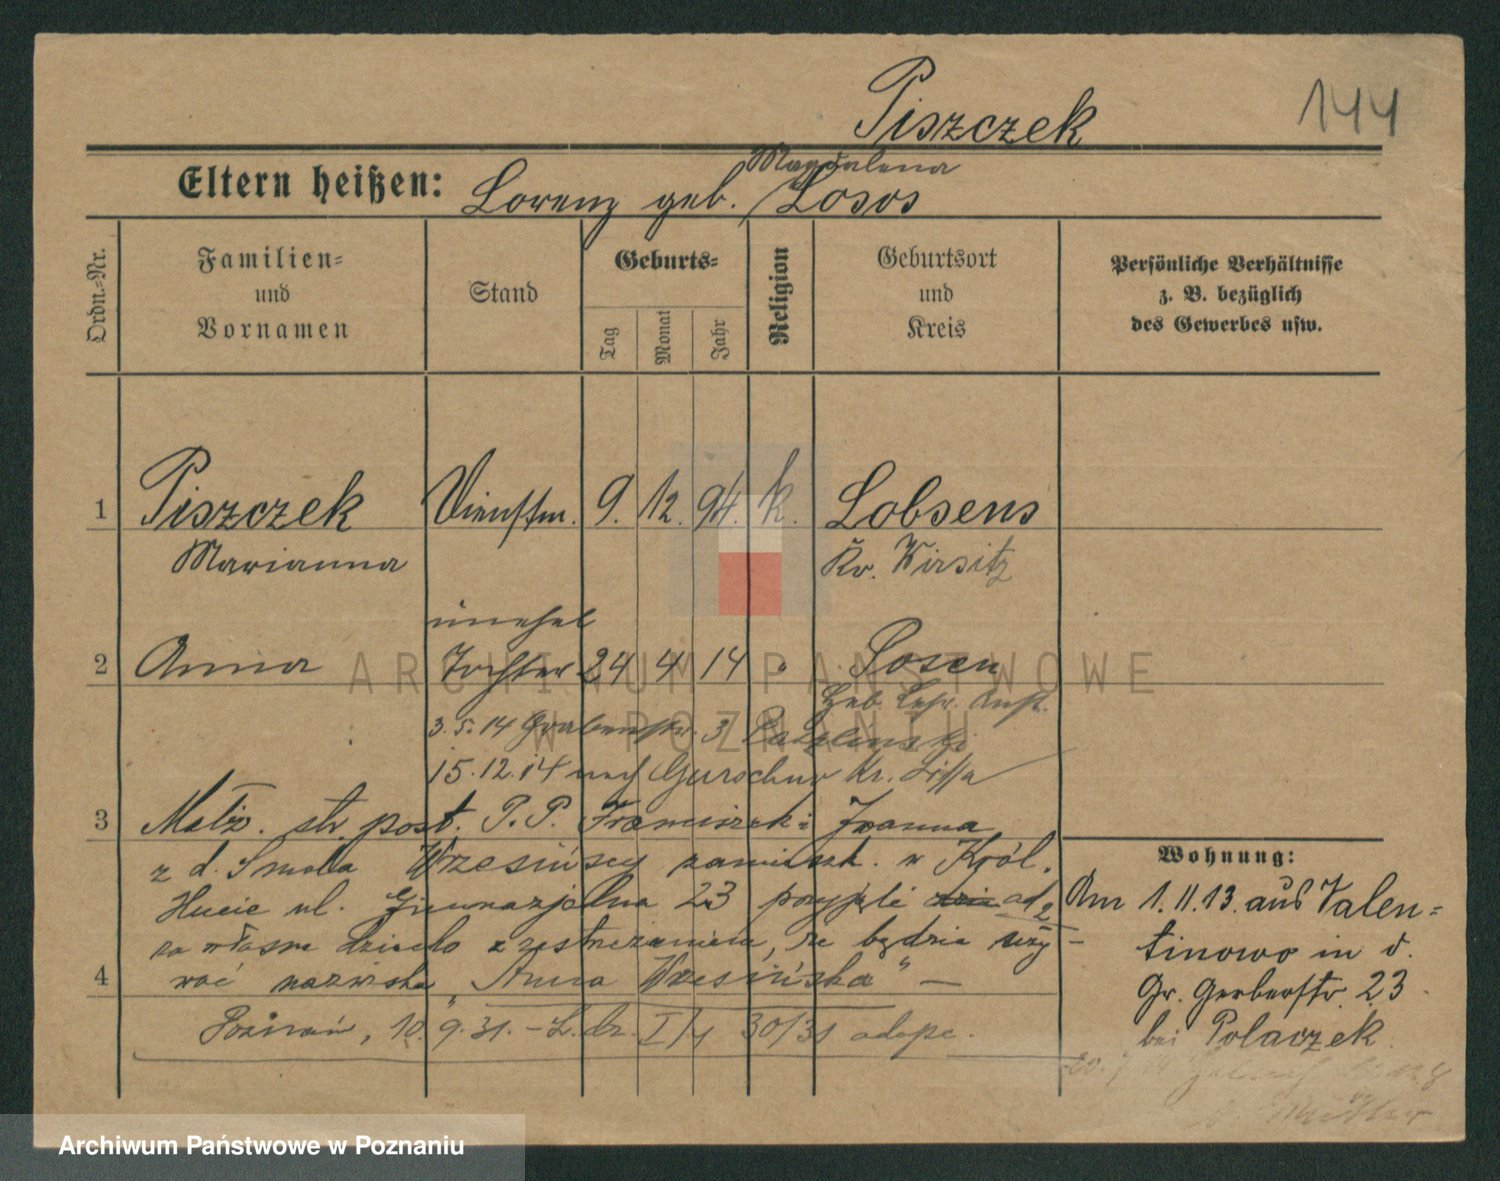 Piszczek 144
Eltern heißen: Lorenz geb. Magdalena Losos
Ordn.-Nr.
Familien-
und
Vornamen
Stand
Geburts-
Tag
Monat
Jahr
Religion
Geburtsort
und
Kreis
Persönliche Verhältnisse
z. B. bezüglich
des Gewerbes usw.
1 Piszczek Dienstm. 9. 12. 94. k. Lobsens
Marianna Kr. Wirsitz
unehel
2 Anna Tochter 24 4 14 " Posen
Geb. Anst.
3.5.14 Grabenstr. 3
15.12.14 nach Kr. Lissa
3 Małż. str. post. P.P. Franciszek i Joanna
z d. Smoła Wrzesińscy zamieszk. w Król.
Hucie ul. Gimnazjalna 23 przyjęli
za własne dziecko z zastrzeżeniem, że będzie uży-
4 wać nazwiska „Anna Wrzesińska" —
Poznań, 10. 9. 31. - L. dz. I/4 30/31 adopc.
Wohnung:
Am 1.11.13. aus Valen-
tinowo in d.
Gr. Gerberstr. 23
bei Polaczek
ARCHIWUM PAŃSTWOWE
W POZNANIU
Archiwum Państwowe w Poznaniu